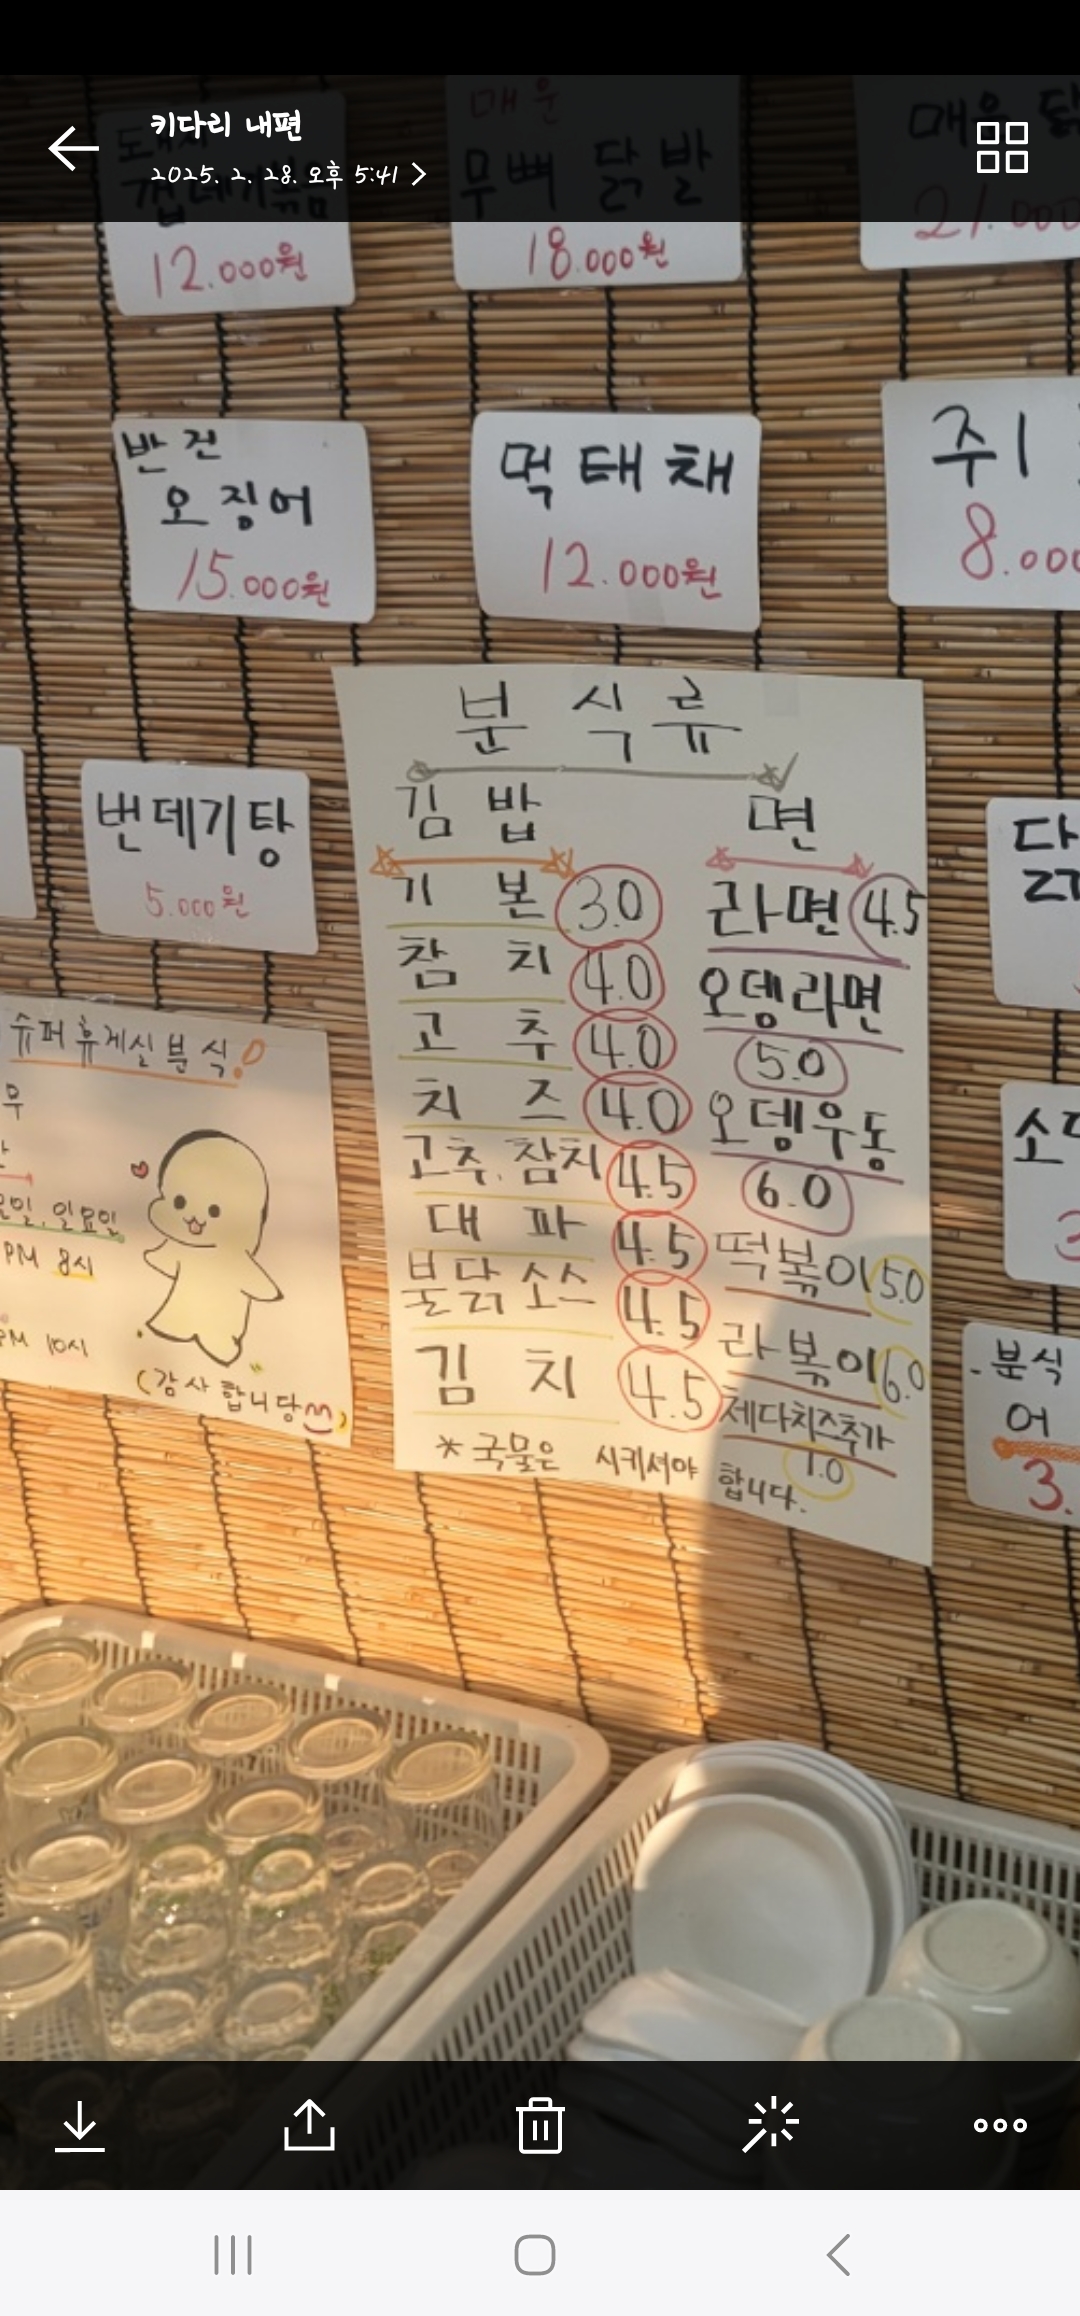 키다리 내편
2025. 2. 28. 오후 5:41
돼지
껍데기볶음
12.000원
매운
무뼈 닭발
18.000원
매운
21.000
반건
오징어
15.000원
먹태채
12.000원
쥐
8.000
번데기탕
5.000원
분식류
김밥
기본 3.0
참치 4.0
고추 4.0
치즈 4.0
고추.참치 4.5
대파 4.5
불닭소스 4.5
김치 4.5
면
라면 4.5
오뎅라면
5.0
오뎅우동
6.0
떡볶이 5.0
라볶이 6.0
체다치즈추가
1.0
*국물은 시키셔야 합니다.
슈퍼휴게실분식!
무
일, 일요일
PM 8시
PM 10시
(감사합니당)
소
3
-분식
어
3.